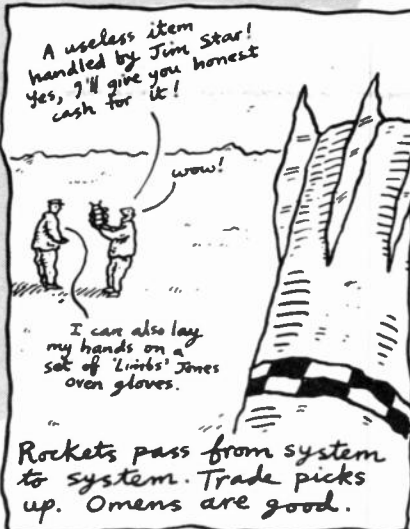 A useless item
handled by Jim Star!
Yes, I'll give you honest
cash for it!
wow!
I can also lay
my hands on a
set of 'Limbs' Jones
oven gloves.
Rockets pass from system
to system. Trade picks
up. Omens are good.